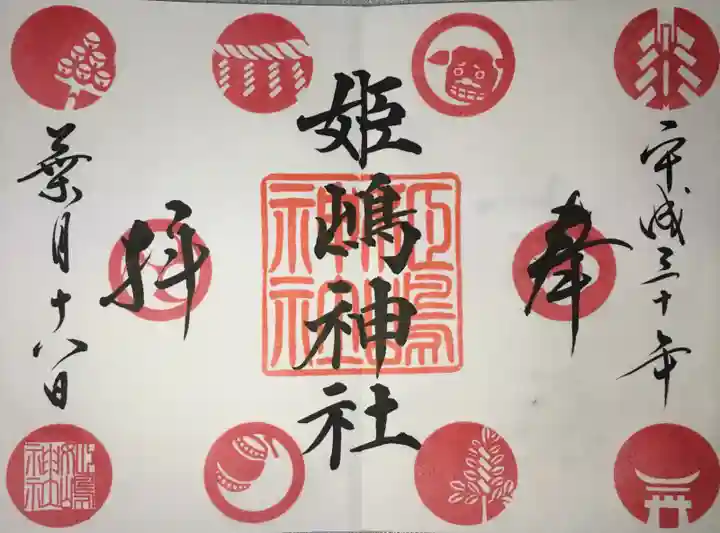 平成三十年
奉
姫嶋神社
姫嶋神社
拝
葉月十八日
姫嶋神社